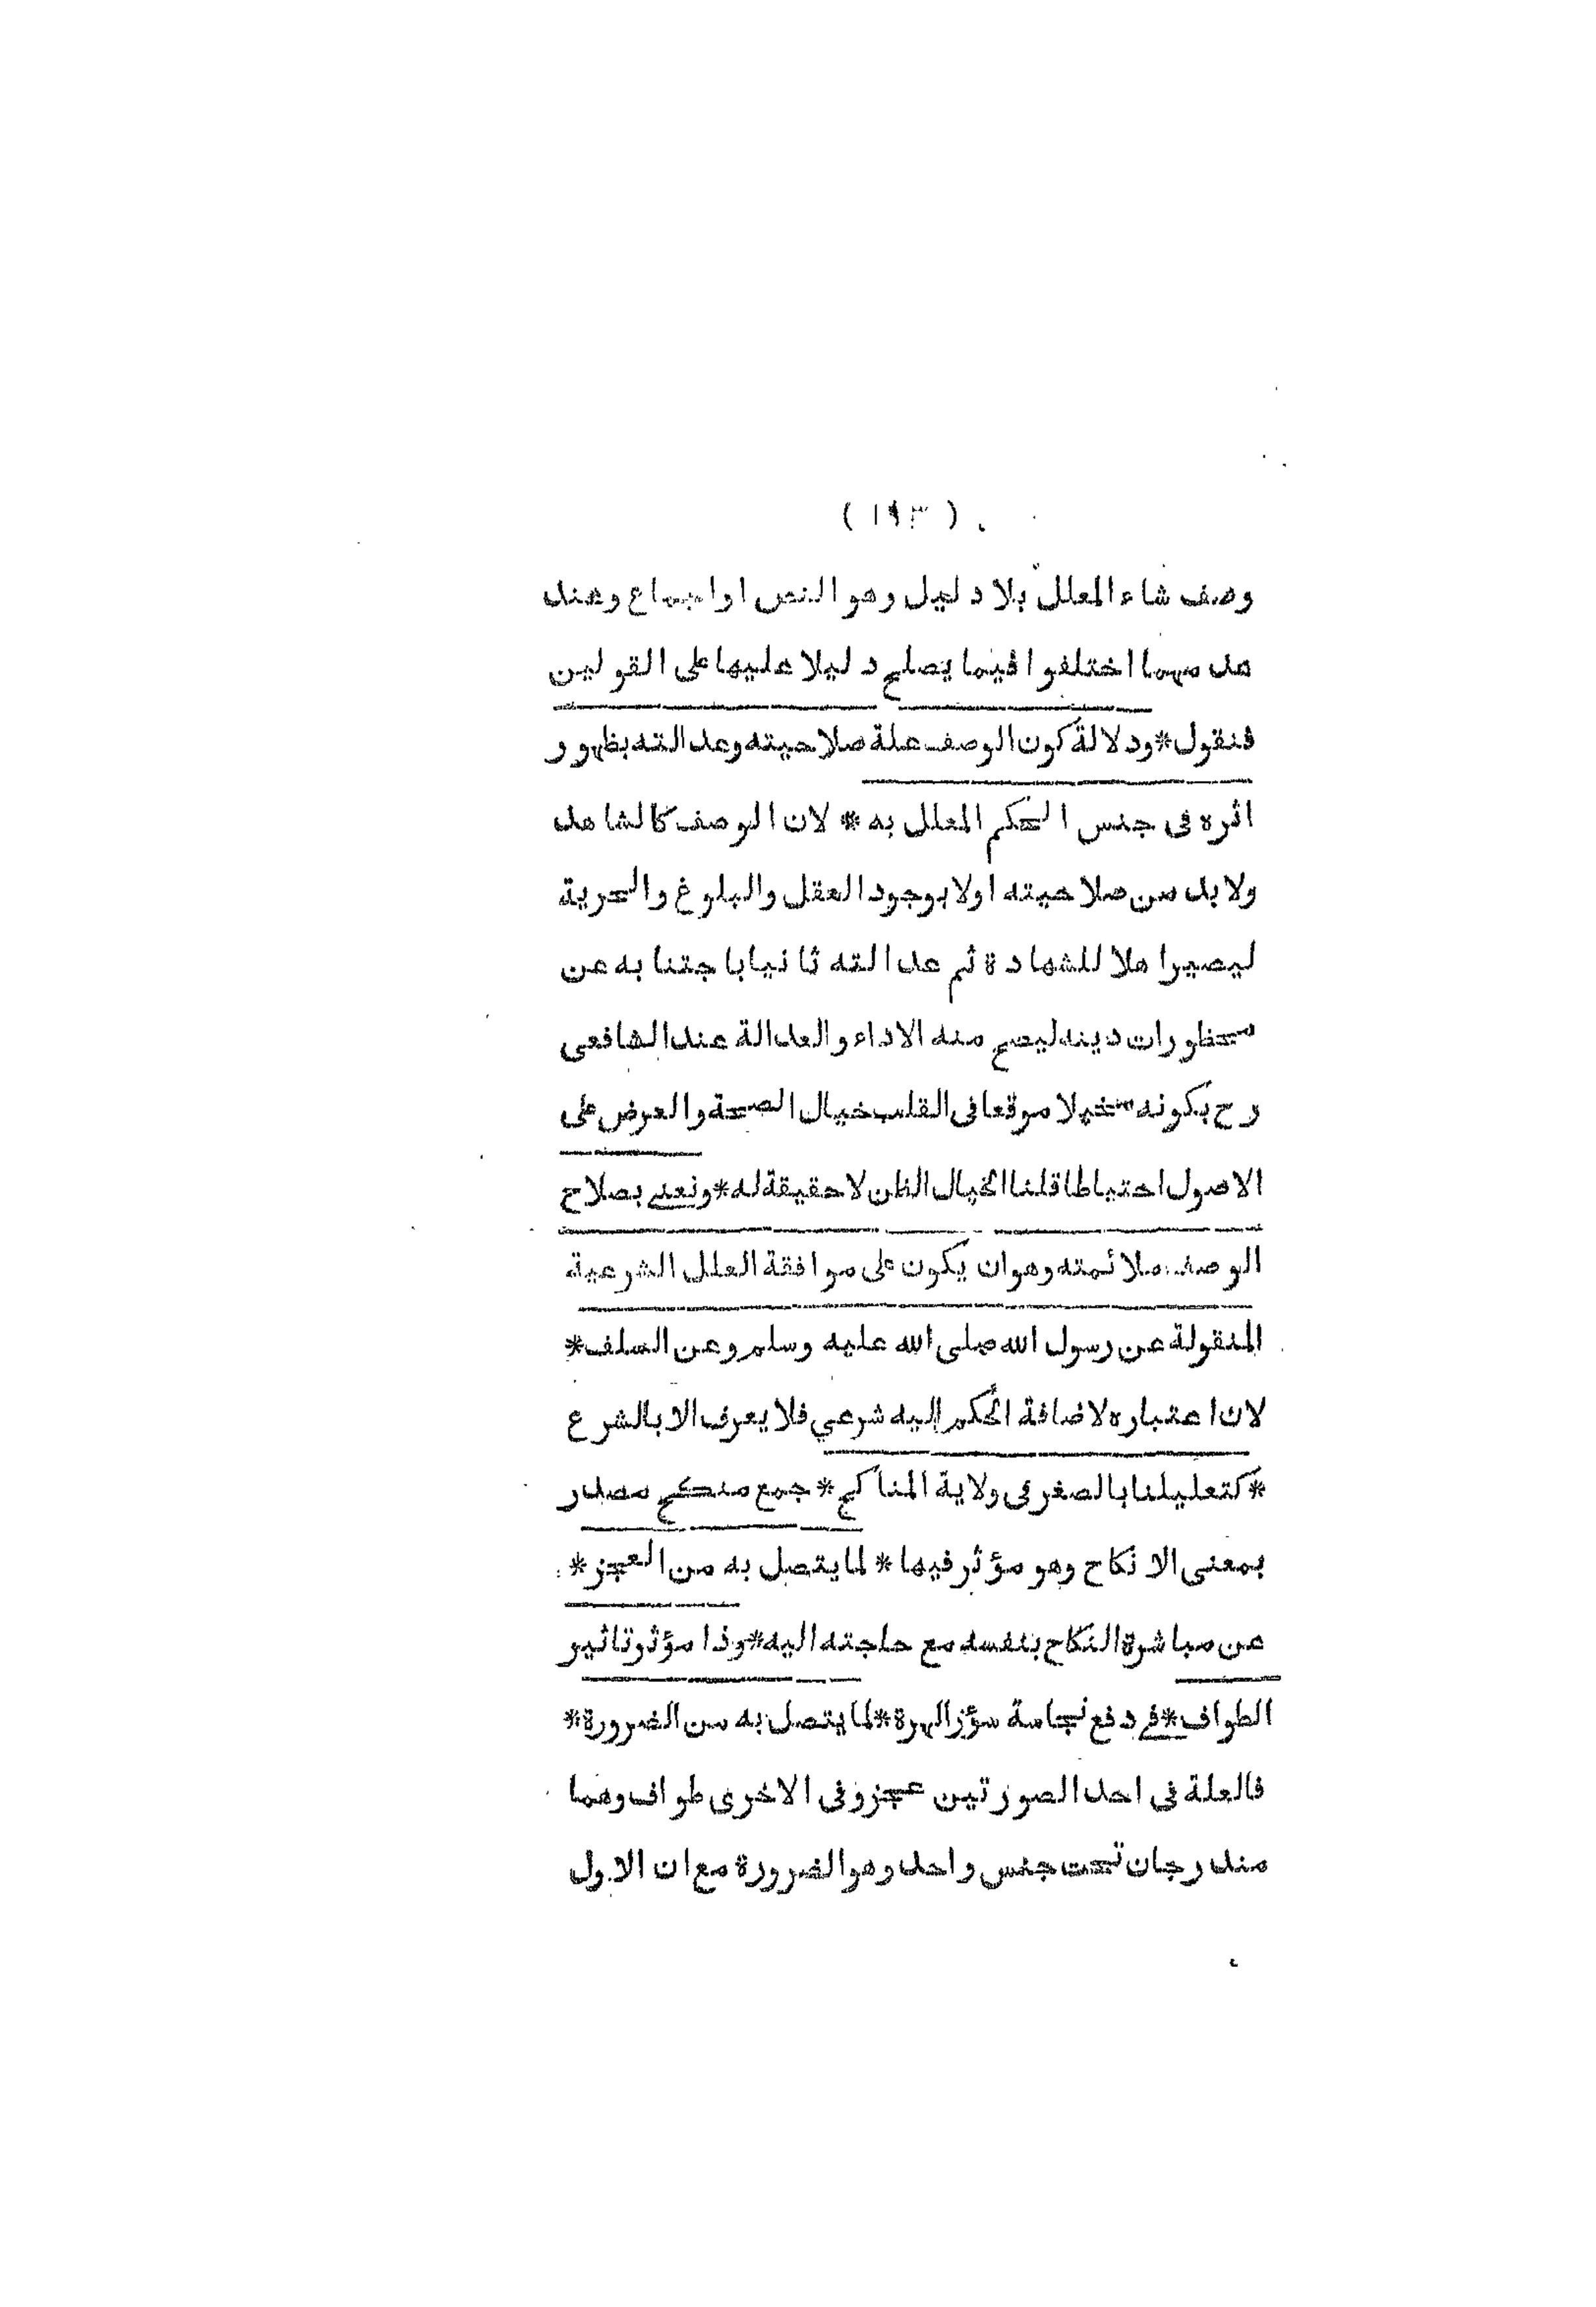 ( ١٩٣ )
وصف شاء المعلل بلا دليل وهو النص او اجماع وعند
عد مهما اختلفوا فيما يصلح دليلا عليها على القولين
فنقول * ودلالة كون الوصف علة صلاحيته وعدالته بظهور
اثره فى جنس الحكم المعلل به * لان الوصف كالشاهد
ولا بد من صلاحيته اولا بوجود العقل والبلوغ والحرية
ليصير اهلا للشهادة ثم عدالته ثانيا باجتنا به عن
محظورات دينه ليصح منه الاداء والعدالة عند الشافعى
رح بكونه مخيلا موقعا فى القلب خيال الصحة والعرض على
الاصول احتياطا قلنا الخيال الظن لا حقيقة له * ونعنے بصلاح
الوصف ملائمته وهو ان يكون على موافقة العلل الشرعية
المنقولة عن رسول الله صلى الله عليه وسلم وعن السلف *
لان اعتباره لاضافة الحكم اليه شرعي فلا يعرف الا بالشرع
* كتعليلنا بالصغر فى ولاية المناكح * جمع منكح مصدر
بمعنى الانكاح وهو مؤثر فيها * لما يتصل به من العجز *
عن مباشرة النكاح بنفسه مع حاجته اليه * وذا مؤثر تاثير
الطواف * فے دفع نجاسة سؤر الهرة * لما يتصل به من الضرورة *
فالعلة فى احد الصورتين عجز وفى الاخرى طواف وهما
مندرجان تحت جنس واحد وهو الضرورة مع ان الاول